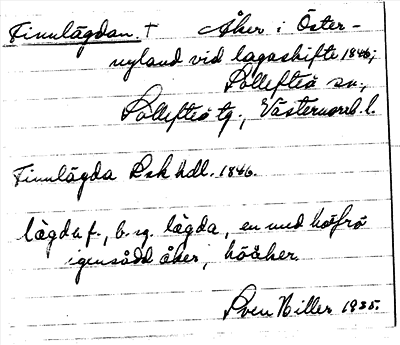 Finnlägdan. † Åker i Öster-
nyland vid lagaskifte 1846;
Sollefteå sn.,
Sollefteå tg., Västernorrl. l.
Finnlägda Lsk hdl. 1846.
lägda f., b. sg. lägda, en med höfrö
igensådd åker, höåker.
Sven Hiller 1935.